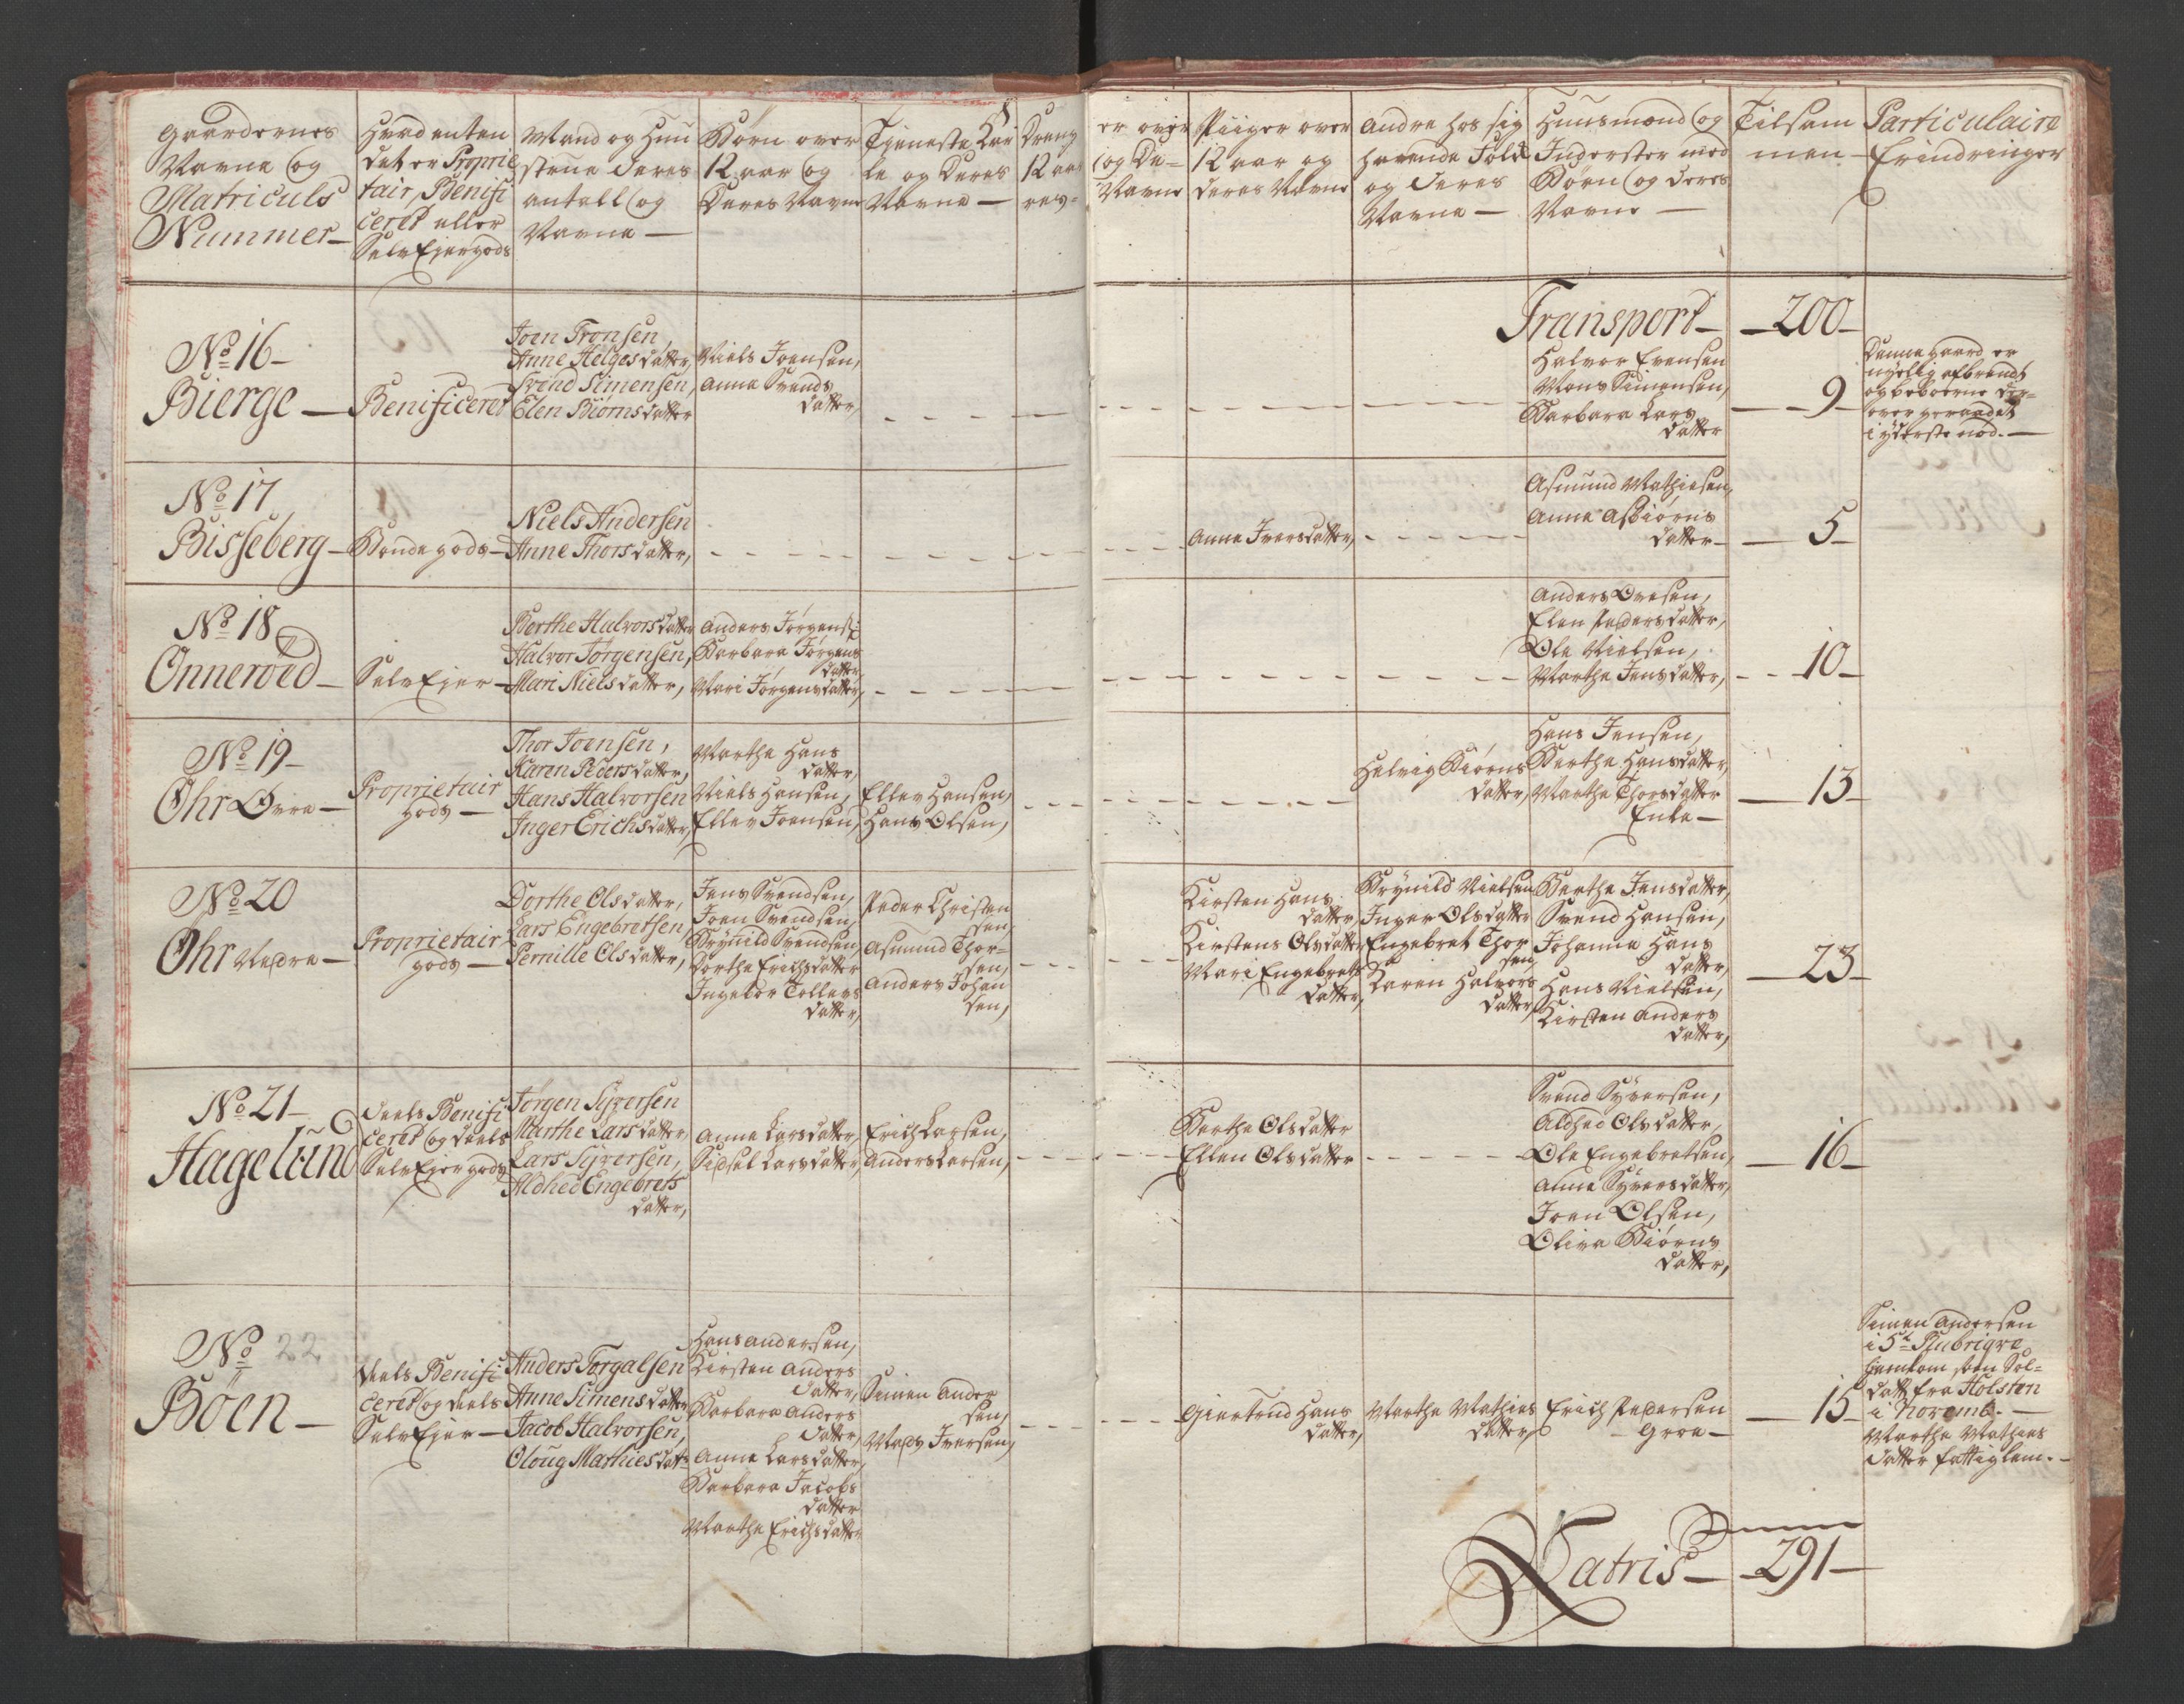 Gaardernes
Navne og
Matriculs
Nummer
Hvad enten
det er Proprie
tair, Benifi
ceret eller
SelvEjergods
Mand og Huu
strue deres
antall og
Navne
Børn over
12 aar og
Deres Navne
Tjeneste Kar
le og Deres
Navne
Dreng
12 aar
res
er over
og De=
Navne
Piiger over
12 aar og
deres Navne
Andre hos sig
havende Folk
og deres
Navne
Huusmænd og
Inderster med
Børn og deres
Navne
Tilsam
men
Particulaire
Erindringer
Transport 200
No 16
Bierge
Benificeret
Joen Tronsen,
Anne Helgesdatter,
Svend Simensen,
Elen Biørnsdatter
Niels Joensen,
Anna Svends
datter,
Halvor Evensen
Mons Simensen,
Barbara Lars
datter
9
Denne gaard er
nyelig afbrendt
og beboerne der=
over geraadet
i yderste nød.
No 17
Bisseberg
Bondegods
Niels Andersen
Anne Thorsdatter,
Anna Iversdatter,
Asmund Mathiesen,
Anna Asbiørns
datter
5
No 18
Onneröed
SelvEjer
Berthe Halvorsdatter
Halvor Jørgensen,
Mari Nielsdatter,
Anders Jørgens:
Barbara Jørgens
datter
Mari Jørgensdatter,
Anders Ovesen,
Elen Pedersdatter,
Ole Nielsen,
Marthe Jensdatter,
10
No 19
Ohr Øvre
Proprietair
gods
Thor Joensen,
Karen Pedersdatter,
Hans Halvorsen
Inger Erichsdatter,
Marthe Hans
datter,
Niels Hansen,
Ellev Joensen,
Ellev Hansen,
Hans Olsen,
Helvig Biørns
datter,
Hans Jensen,
Berthe Hansdatter,
Marthe Thorsdatter
Enke
13
No 20
Ohr Nedre
Proprietair
gods
Dorthe Olsdatter,
Lars Engebretsen,
Pernille Olsdatter,
Jens Svendsen,
Joen Svendsen,
Brynild Svendsen,
Dorthe Erichsdatter
Ingebor Tollevs
datter,
Peder Christen
sen,
Asmund Thor=
sen,
Anders Johan
sen,
Kirsten Hans
datter,
Kirstens Olsdatter
Mari Engebrets
datter,
Brynild Nielsen
Inger Olsdatter
Engebret Thor
sen,
Karen Halvors
datter,
Berthe Jensdatter,
Svend Hansen,
Johanna Hans
datter,
Hans Nielsen,
Kirsten Anders
datter,
23
No 21
Hagelund
deels Benifi
ceret og deels
SelvEjergods
Jørgen Syversen
Marthe Larsdatter,
Lars Syversen,
Aldhed Engebrets
datter,
Anna Larsdatter,
Sidsel Larsdatter,
Erich Larsen,
Anders Larsen,
Berthe Olsdatter
Ellen Olsdatter
Svend Syversen,
Aldhed Olsdatter,
Ole Engebretsen,
Anna Syversdatter,
Joen Olsen,
Oliva Biørns
datter,
16
No 22
Böen
deels Benifi
ceret og deels
SelvEjer
Anders Torgalsen
Anne Simensdatter
Jacob Halvorsen,
Oloug Mathiesdatr
Hans Andersen,
Kirsten Anders
datter,
Barbara Anders
datter,
Anna Larsdatter,
Barbara Jacobs
datter
Marthe Erichsdatter
Simen Ander
sen,
Mads Iversen,
Giertrud Hans
datter,
Marthe Mathies
datter,
Erich Pedersen
Groe
15
Simen Andersen
i 5te Rubrique
hiemkom som Sol=
dat fra Holsten
i Novemb.
Marthe Mathies
datter fattiglem.
Latris 291